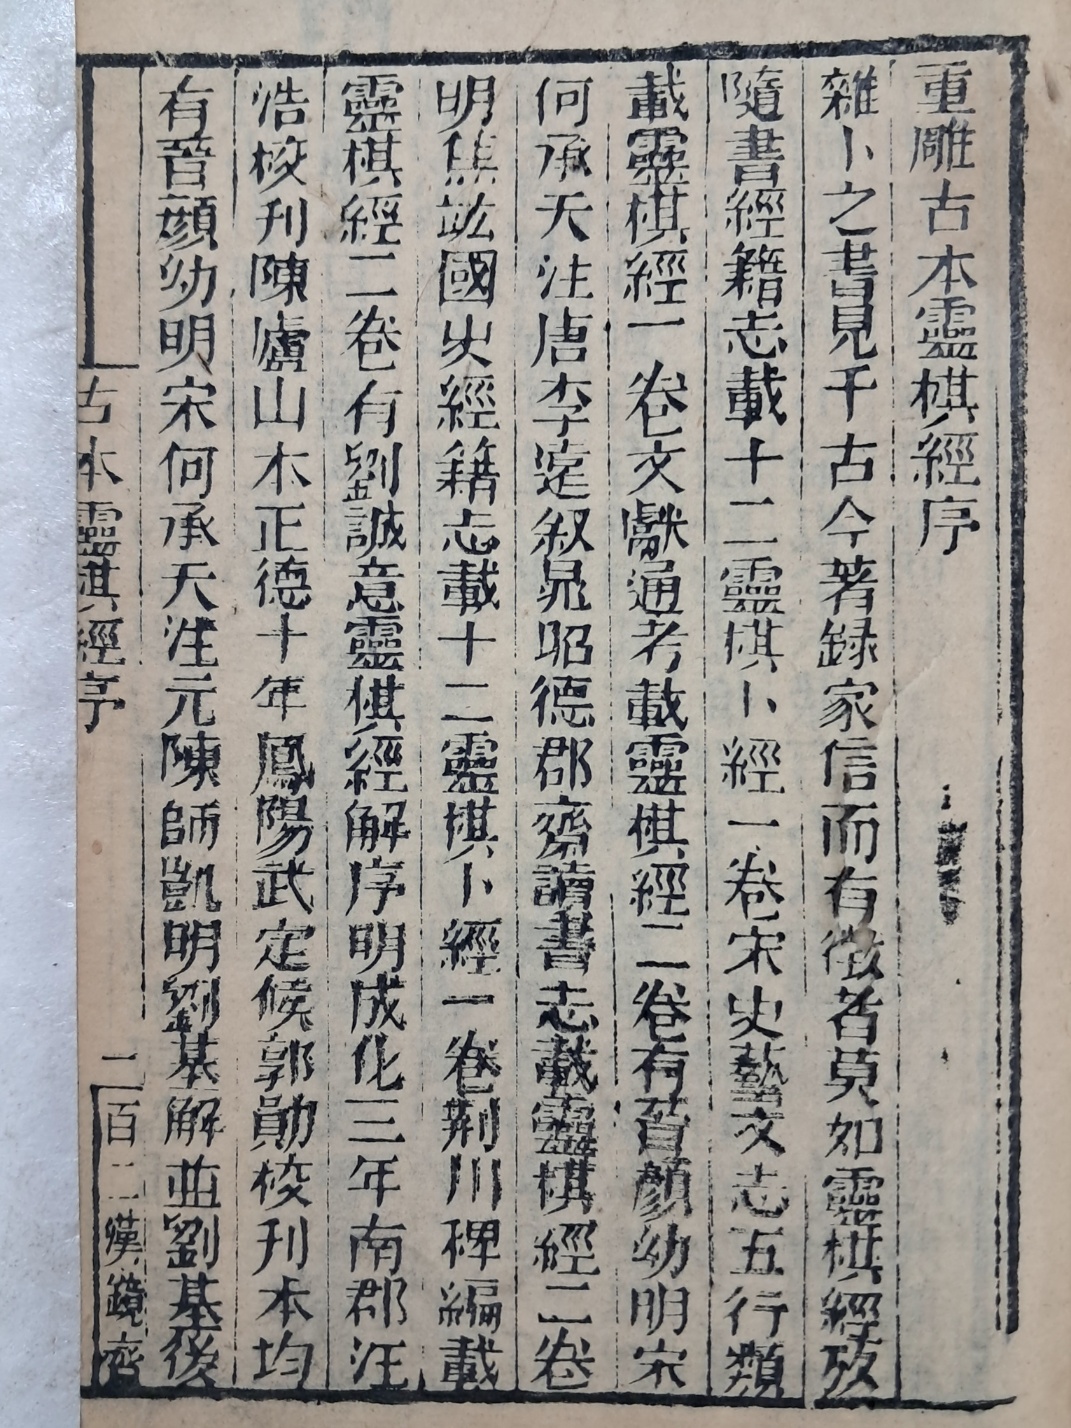 重雕古本靈棋經序
雜卜之書見于古今著録家信而有徵者莫如靈棋經攷
隨書經籍志載十二靈棋卜經一卷宋史藝文志五行類
載靈棋經一卷文獻通考載靈棋經二卷有晉顔幼明宋
何承天注唐李遠叙晁昭德郡齋讀書志載靈棋經二卷
明焦竑國史經籍志載十二靈棋卜經一卷荆川稗編載
靈棋經二卷有劉誠意靈棋經解序明成化三年南郡汪
浩校刋陳廬山本正德十年鳳陽武定侯郭勛校刋本均
有晉顔幼明宋何承天注元陳師凱明劉基解並劉基後
古本靈棋經序
二百二漢鏡齋